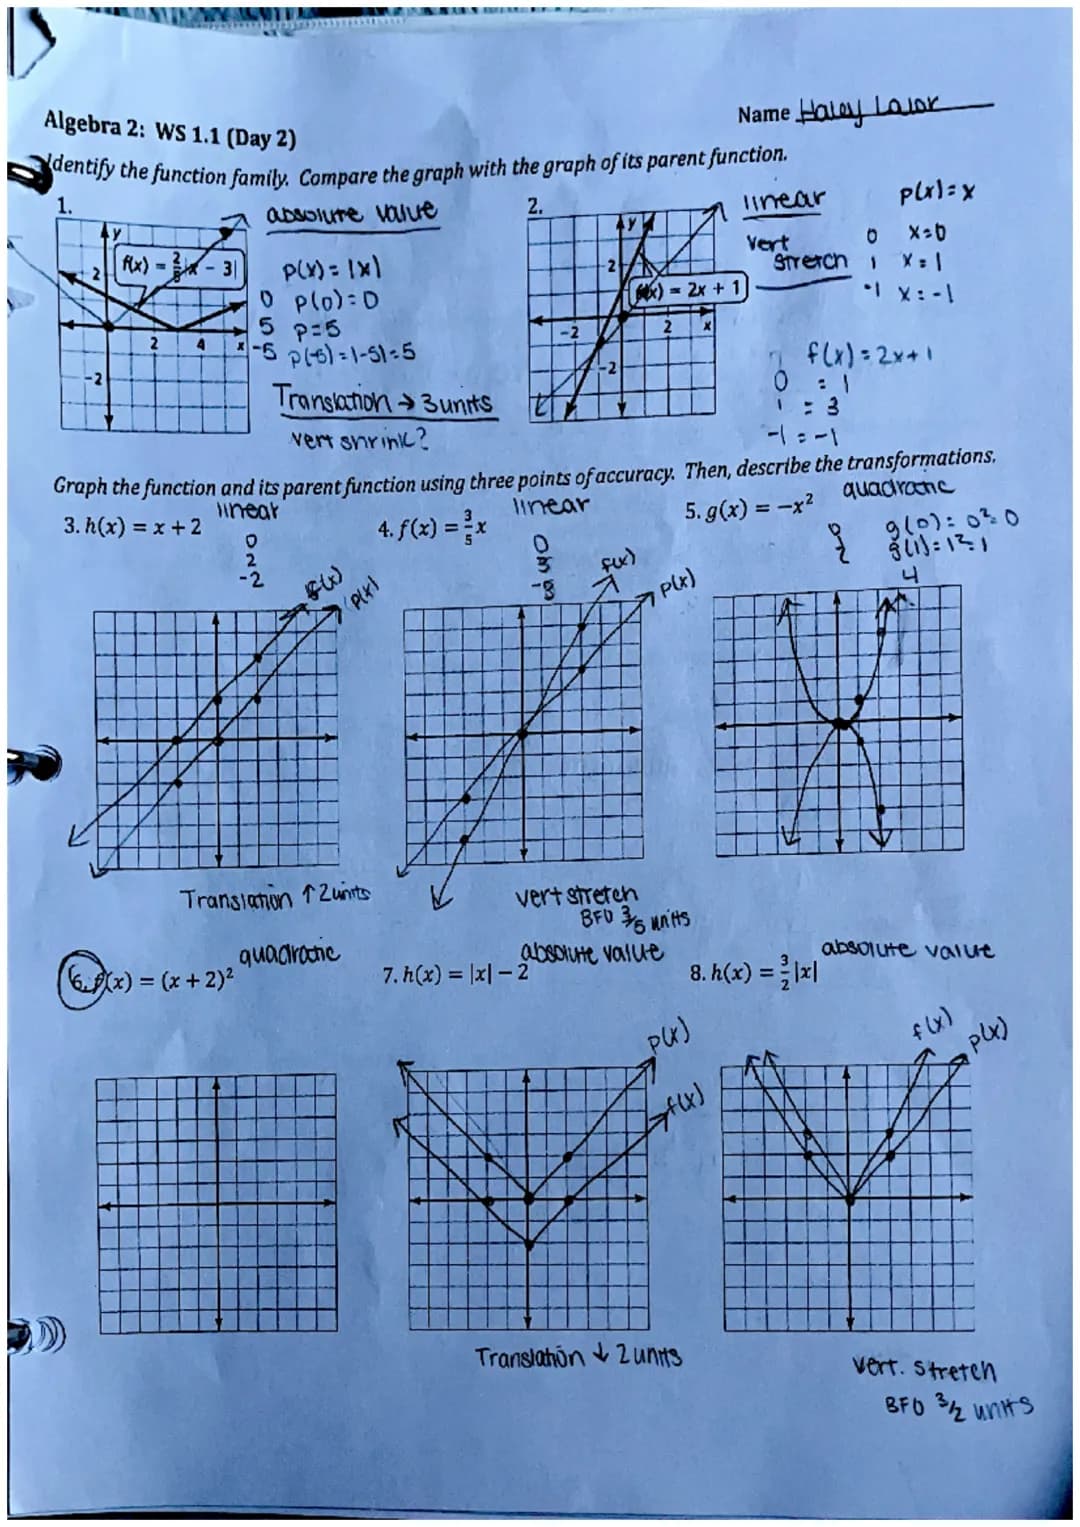 Name Haley Lalor
Algebra 2: WS 1.1 (Day 2)
Identify the function family. Compare the graph with the graph of its parent function.
1.
absolute value
y
f(x) = |x - 3|
2
2 4 x
-2
p(x) = |x|
0 p(0) = 0
5 p = 5
-5 p(-5) = |-5| = 5
Translation → 3 units
vert shrink?
2.
linear
p(x) = x
y
vert
stretch
0 x=0
1 x = 1
-1 x = -1
2
f(x) = 2x + 1
-2 2 x
-2
f(x) = 2x+1
0 = 1
1 = 3
-1 = -1
Graph the function and its parent function using three points of accuracy. Then, describe the transformations.
3. h(x) = x + 2
linear
0
2
-2
p(x)
Translation ↑ 2 units
4. f(x) = 3/5 x
linear
0
3
-3
f(x)
p(x)
vert stretch
BFO 3/5 units
5. g(x) = -x²
quadratic
0
1
2
g(0) = 0² = 0
g(1) = 1² = 1
4
6. f(x) = (x + 2)²
quadratic
7. h(x) = |x| - 2
absolute value
p(x)
f(x)
Translation ↓ 2 units
8. h(x) = 3/2 |x|
absolute value
f(x)
p(x)
vert. stretch
BFO 3/2 units